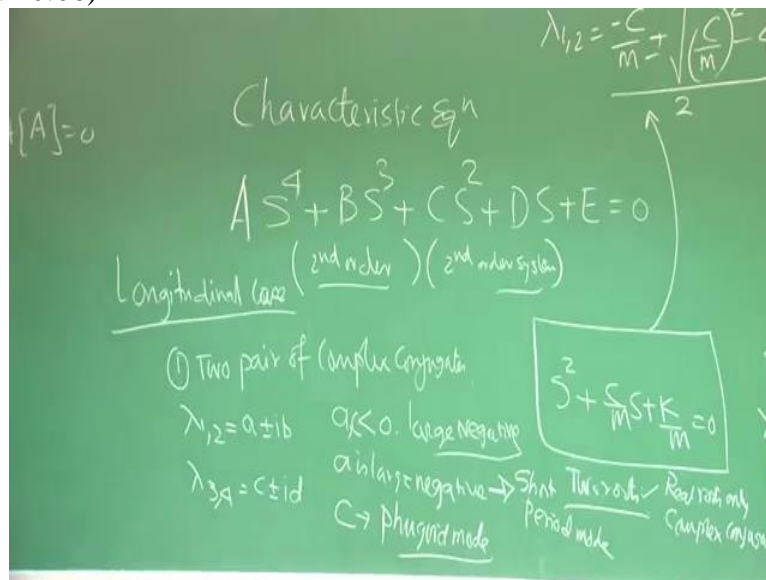 λ1,2 = -C/m ± √(C/m)² -
2
t[A]=0
Characteristic Eqn
AS⁴ + BS³ + CS² + DS + E = 0
Longitudinal case (2nd order) (2nd order system)
① Two pair of Complex Conjugates
λ1,2 = a ± ib a<0. large negative
λ3,4 = c ± id a is large negative → Short Period mode
C → phugoid mode
S² + C/m S + K/m = 0
Two roots ✓ Real roots only
Complex Conjuga